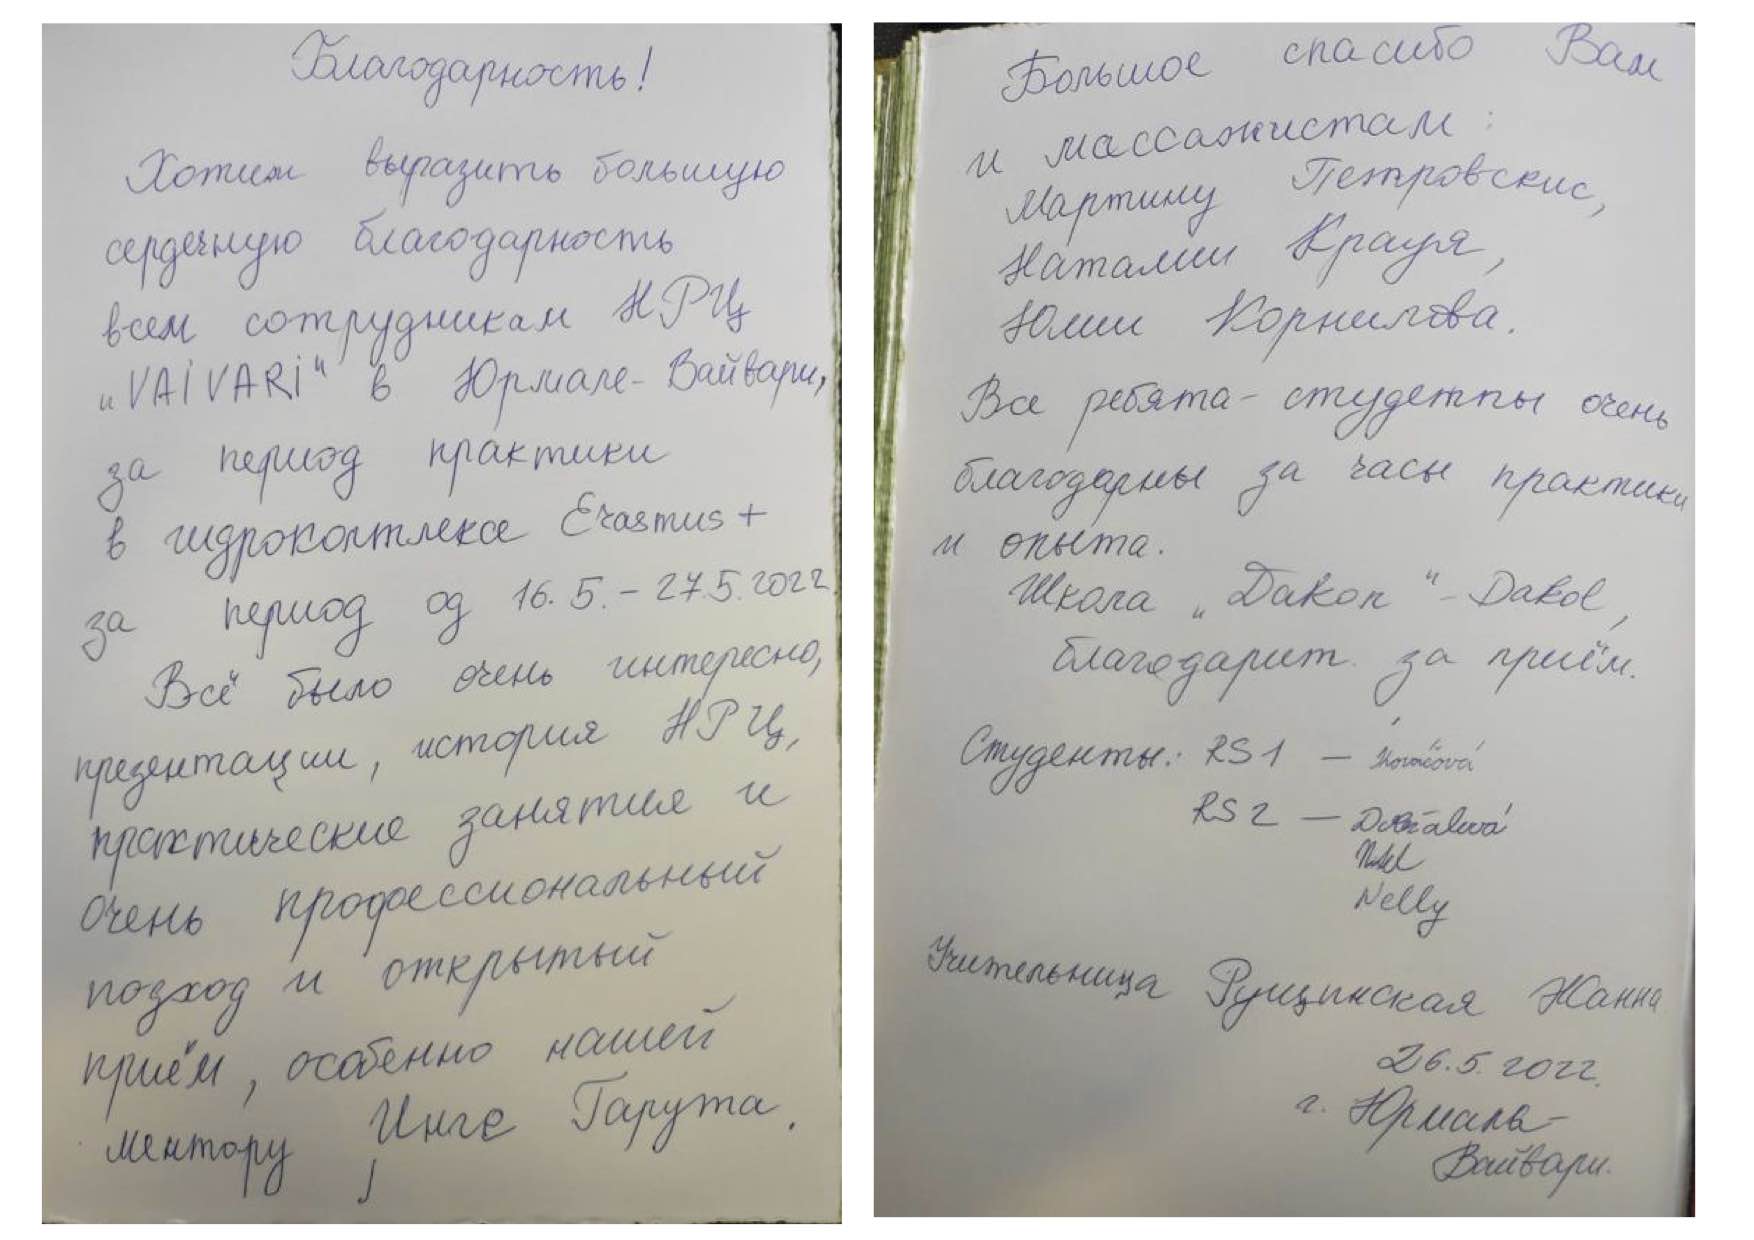 Благодарность!
Хотим выразить большую
сердечную благодарность
всем сотрудникам НРЦ
„VAIVARI" в Юрмале-Вайвари,
за период практики
в гидрокомплексе Erasmus+
за период од 16.5.-27.5.2022
Всё было очень интересно,
презентации, история НРЦ,
практические занятия и
очень профессиональный
позход и открытый
приём, особенно нашей
ментору Инге Гарута.
Большое спасибо Вам
и массажистам:
Мартину Петровскис,
Наталии Крауя,
Юлии Корнилова.
Все ребята-студенты очень
благодарны за часы практики
и опыта.
Школа „Дакол"-Dakol,
благодарит за приём.
Студенты: RS1 –
RS2 –
Nelly
Учительница Рущинская Жанна
26.5.2022.
г. Юрмала-
Вайвари.